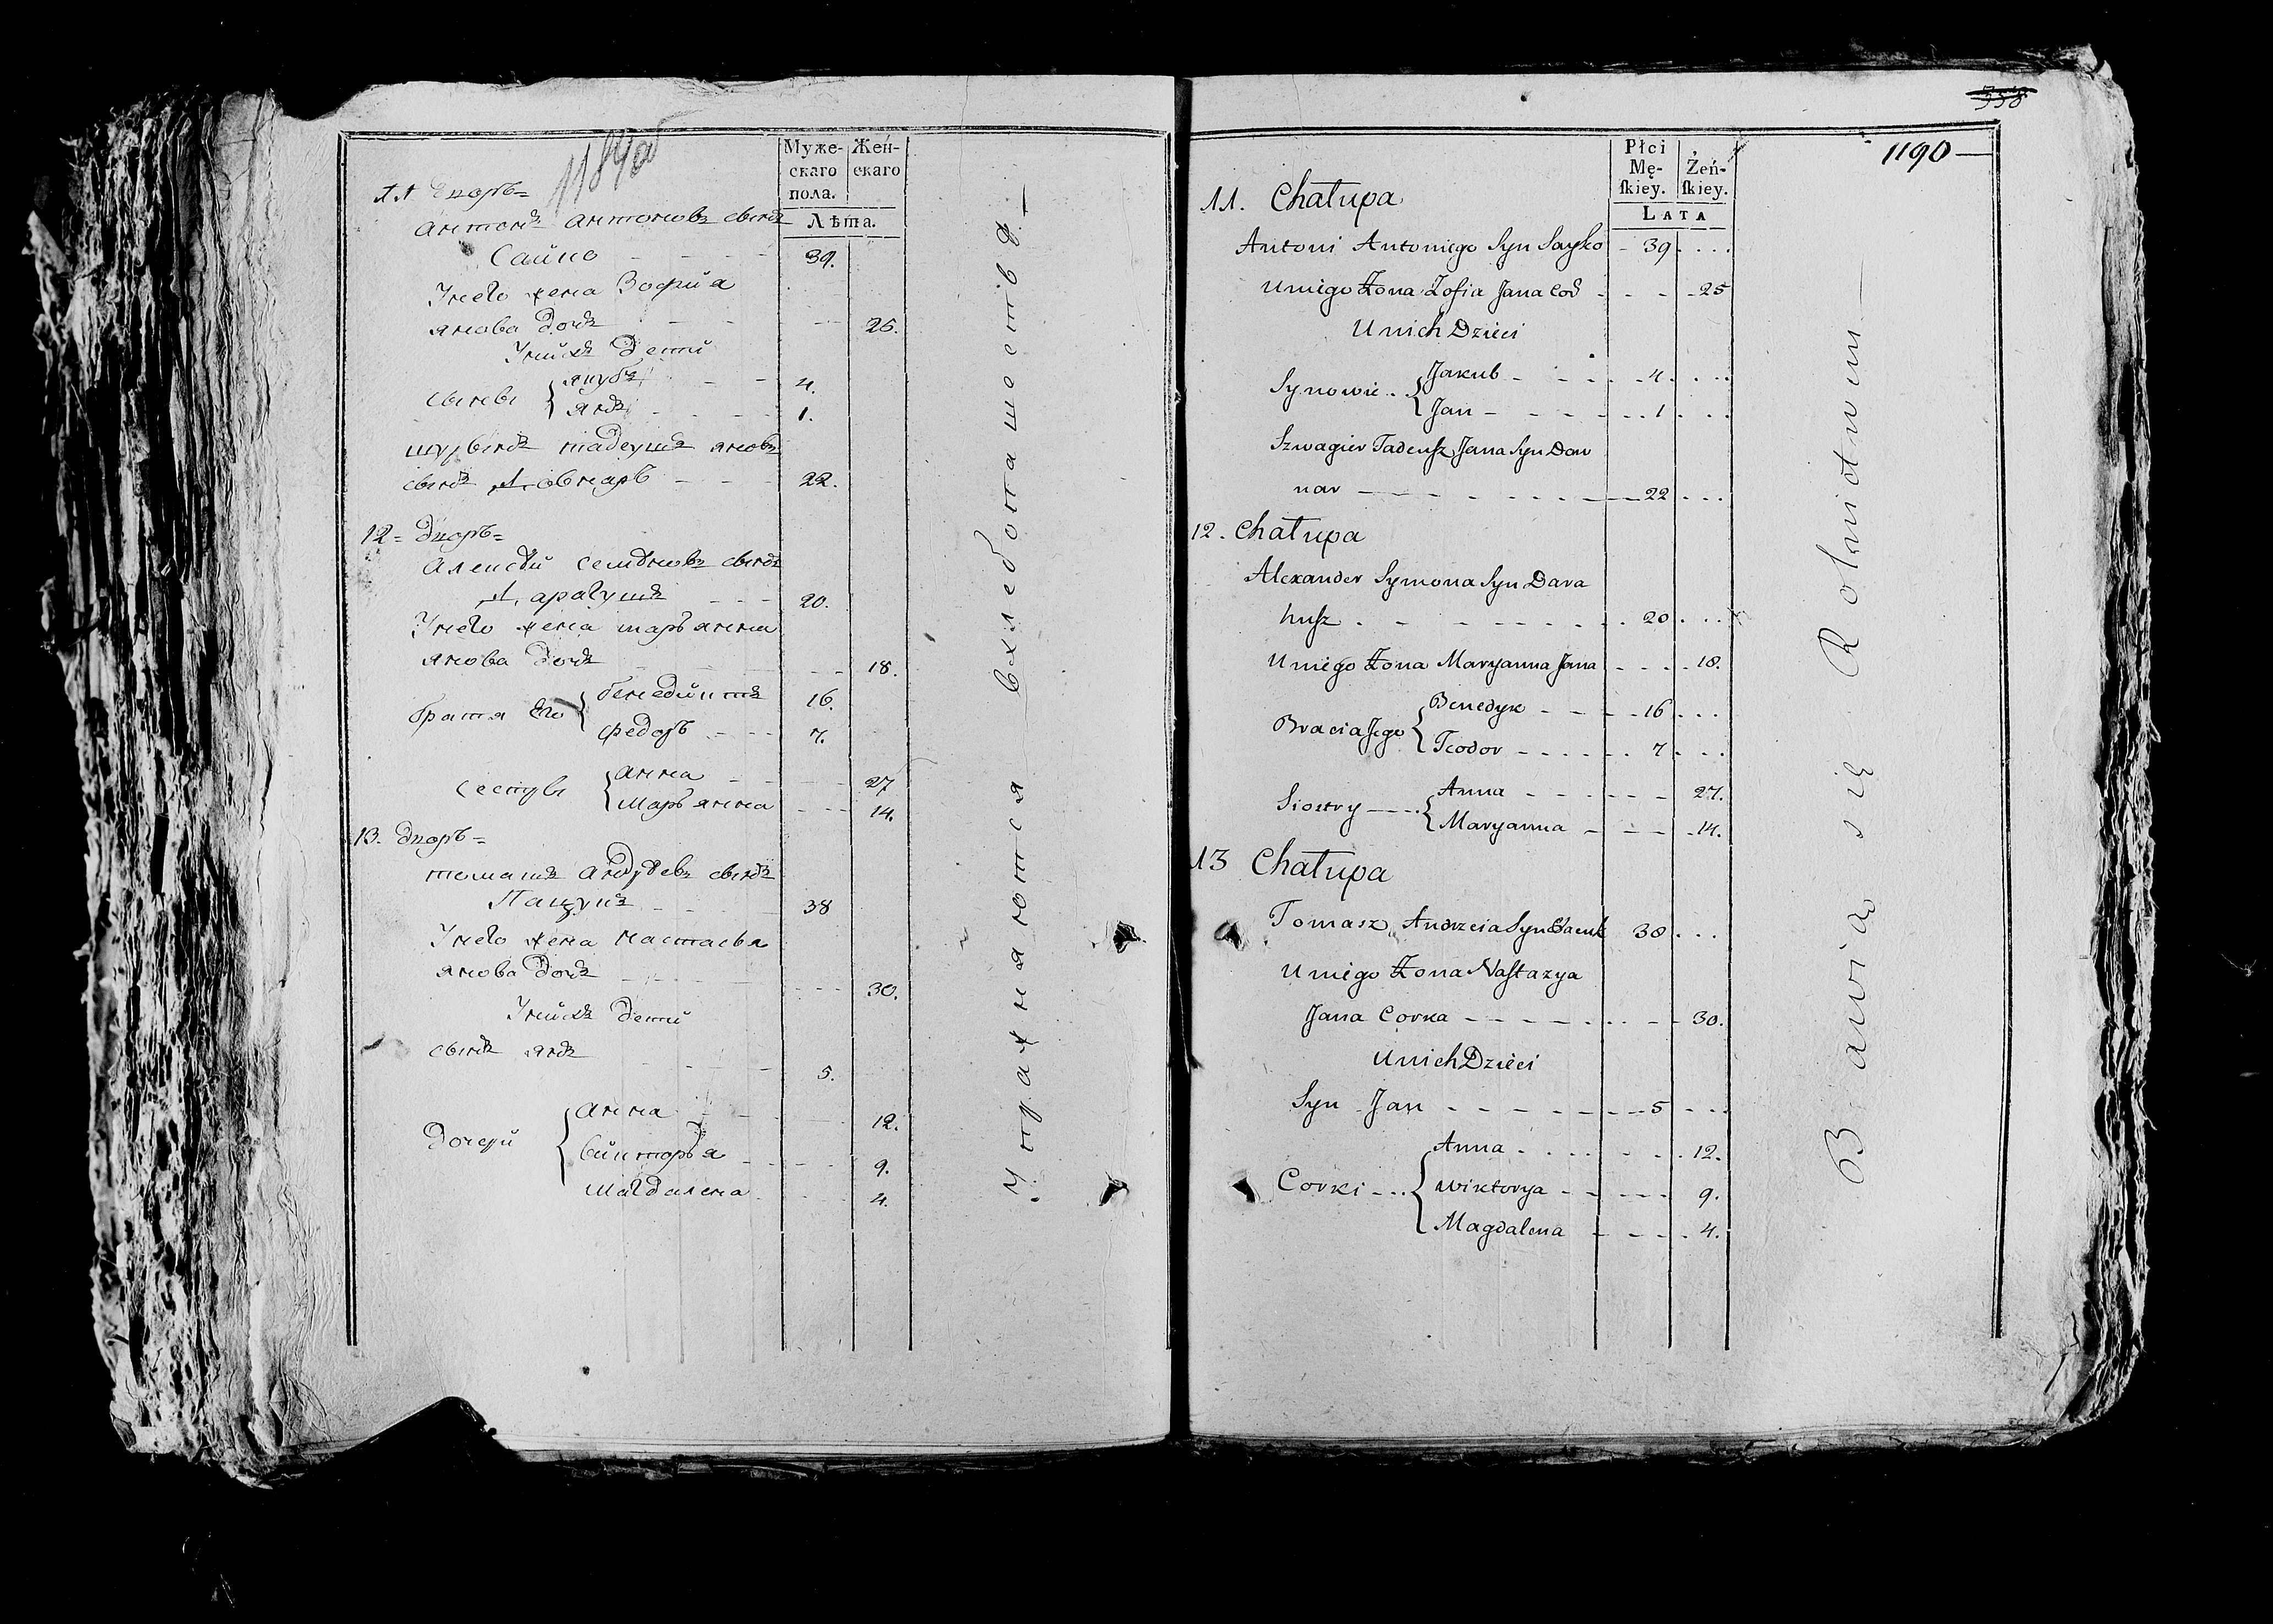 1189об
Муже- Жен-
скаго скаго
пола.
Лѣта.
11 дворъ
Антонъ Антоновъ сынъ
Сайко 39.
У него жена Зофия
Янова дочь 25.
У нихъ дети
сынове Якубъ 4.
Янъ 1.
шурынъ Тадеушъ Яновъ
сынъ 22.
12 дворъ
Алексѣй Семѣновъ сынъ
20.
У него жена Марьянна
Янова дочь 18.
братья Его бенедиктъ 16.
Федоръ 7.
сестры Анна 27
Марьянна 14.
13. дворъ
Томашъ Андрѣевъ сынъ
Пацукъ 38
У него жена Настасья
Янова дочь 30.
У нихъ дети
сынъ Янъ 5.
дочери Анна 12.
Викторья 9.
Магдалена 4.
Упражняются в хлебопашестве
358
1190
Płci Żeń-
Mę- skiey.
skiey.
LATA
11. Chałupa
Antoni Antoniego Syn Sayko 39
U niego Żona Zofia Jana Cor 25
U nich Dzieci
Synowie Jakub 4
Jan 1
Szwagier Tadeusz Jana Syn Dow
nar 22
12. Chałupa
Alexander Symona Syn Dara
husz 20
U niego Żona Maryanna Jana 18.
Bracia Jego Benedyk 16
Teodor 7
Siostry Anna 27.
Maryanna 14.
13 Chałupa
Tomasz Andrzeia Syn 38
U niego Żona Nastazya
Jana Corka 30.
U nich Dzieci
Syn Jan 5
Corki Anna 12.
Wiktorya 9.
Magdalena 4.
Bawią się Rolnictwem